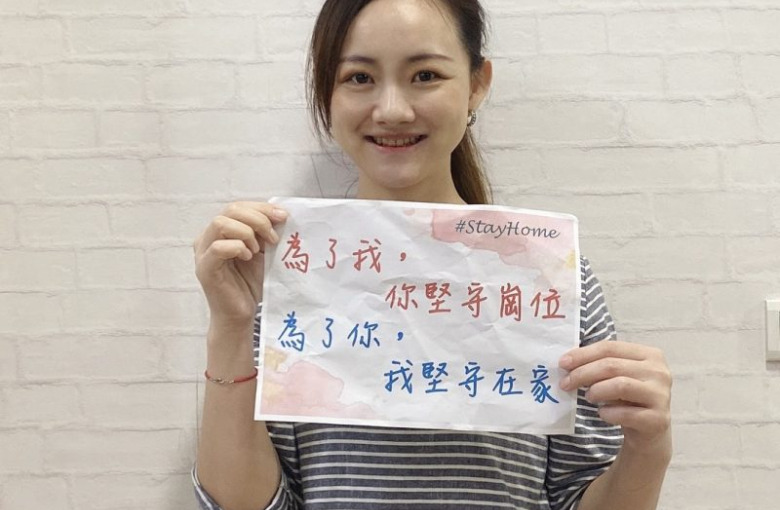 #StayHome
為了我，
你堅守崗位
為了你，
我堅守在家